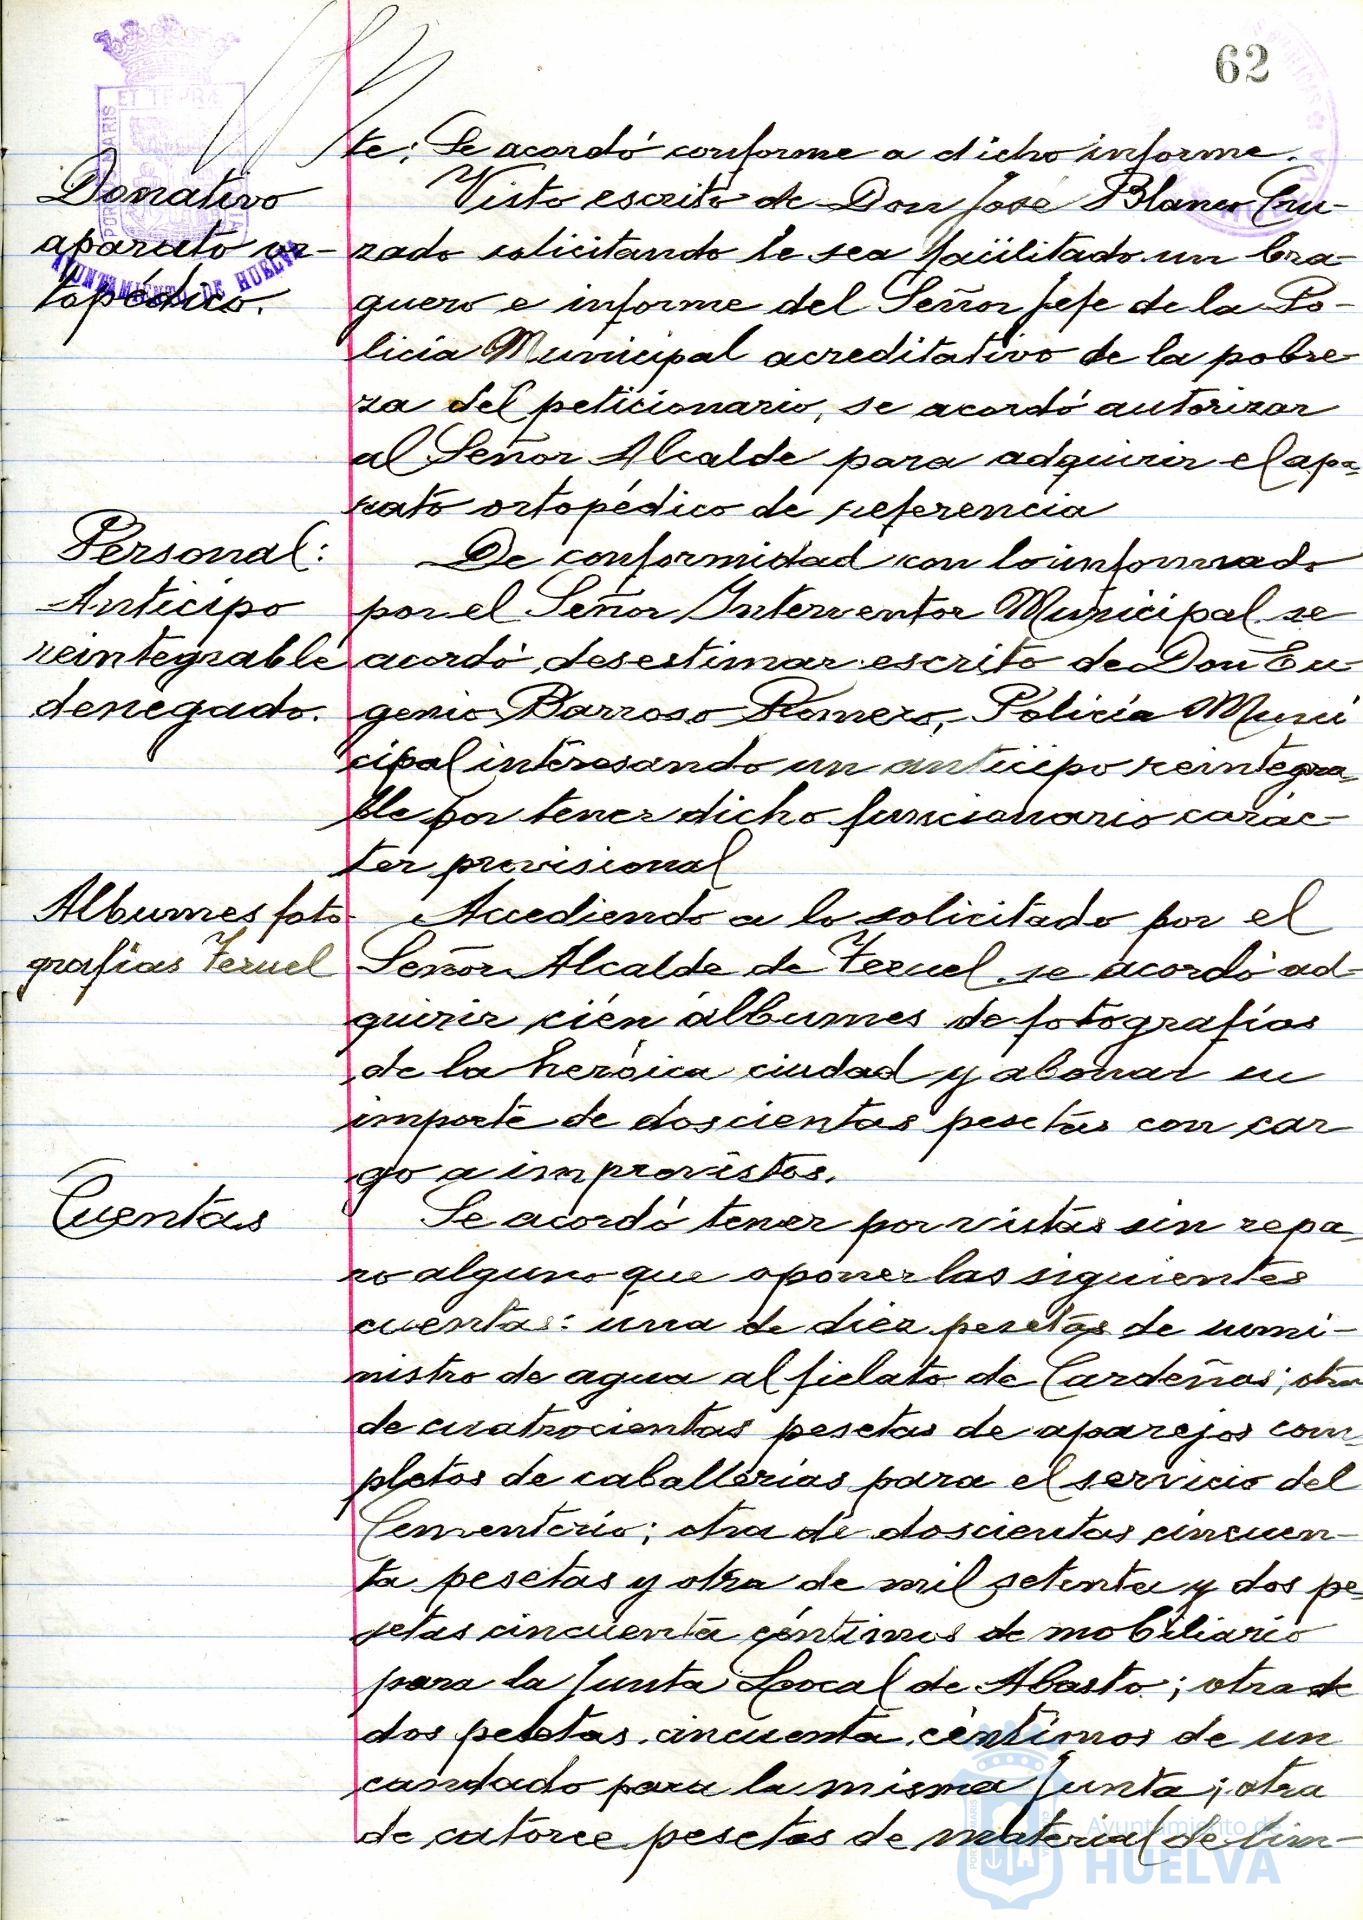 62
te; Se acordó conforme a dicho informe.
Donativo
aparato or-
topédico.
Visto escrito de Don José Blanco Cru-
zado solicitando le sea facilitado un bra-
guero e informe del Señor Jefe de la Po-
licia Municipal acreditativo de la pobre-
za del peticionario, se acordó autorizar
al Señor Alcalde para adquirir el apa-
rato ortopédico de referencia
Personal:
Anticipo
reintegrable
denegado.
De conformidad con lo informado
por el Señor Interventor Municipal se
acordó desestimar escrito de Don Eu-
genio Barroso Romero, Policía Muni
cipal interesando un anticipo reintegra-
ble por tener dicho funcionario carác-
ter provisional
Albumes foto-
grafías Teruel
Accediendo a lo solicitado por el
Señor Alcalde de Teruel se acordó ad-
quirir cién álbumes de fotografías
de la heróica ciudad y abonar su
importe de doscientas pesetas con car
go a imprevistos.
Cuentas
Se acordó tener por vistas sin repa-
ro alguno que oponer las siguientes
cuentas: una de diez pesetas de sumi-
nistro de agua al fielato de Cardeñas; otra
de cuatrocientas pesetas de aparejos com-
pletos de caballerías para el servicio del
Cementerio; otra de doscientas cincuen-
ta pesetas y otra de mil setenta y dos pe-
setas cincuenta céntimos de mobiliario
para la Junta Local de Abasto; otra de
dos pesetas cincuenta céntimos de un
candado para la misma Junta; otra
de catorce pesetas de material de lim-
ET TERRÆ
PORTUS MARIS
AYUNTAMIENTO DE HUELVA
Ayuntamiento de
HUELVA